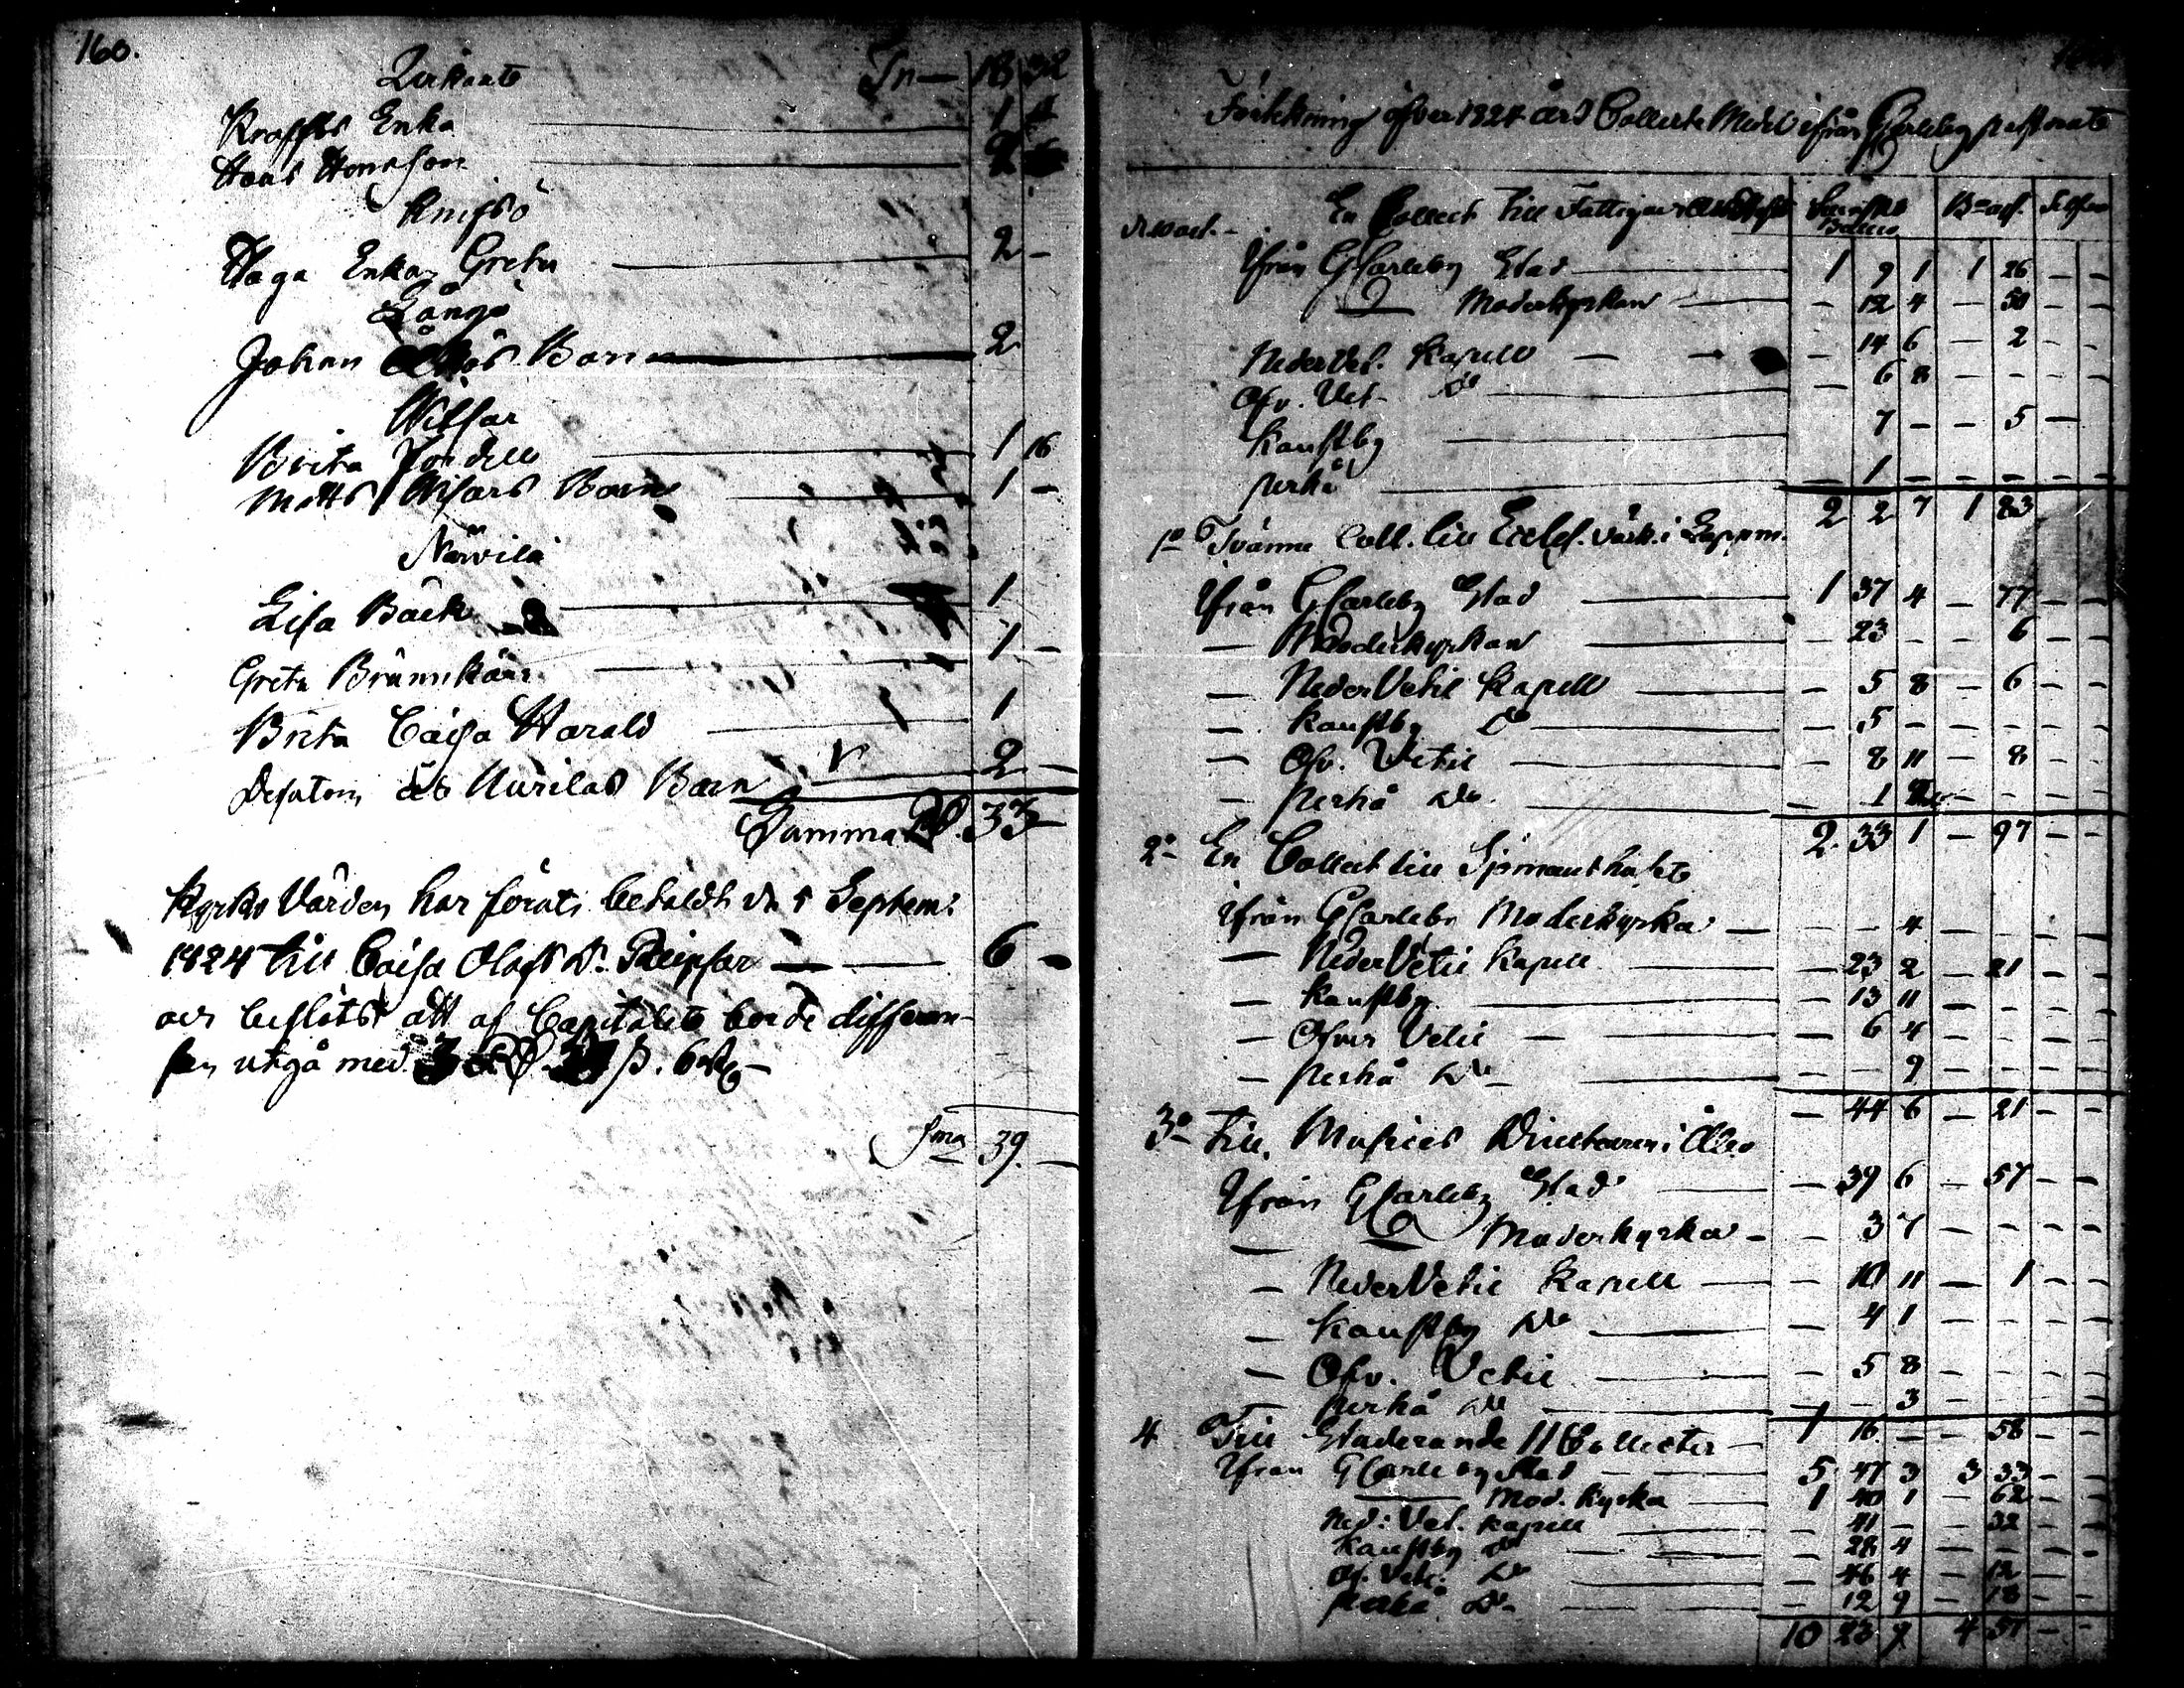 160.
Tn — 18 32
Kraffts Enka — 1
Hans Hansson — 2
Knifsö
Haga Enkan Greta — 2 –
Långö
Johan Barn — 2
Wilsar
Brita — 1 16
Matts Wisars Barn — 1 –
Närvilä
Lisa Bäck — 1
Greta Brännkärr — 1 –
Brita Caisa Harald — 1
Desutom åt Murilas Barn — 2 –
Summa 33 –
Kyrko Värden har förut betaldt d. 5 Septem:
1824 till Caisa Olofs D. Reipsar — 6 –
och beslöts att af Capitalet borde differen-
sen utgå med
Sma 39. –
Förteckning öfver 1824 års Collecte Medel ifrån GCarleby pastorat
En Collect till Fattiga
Ifrån GCarleby Stad — 1 9 1 1 26 – –
Moderkyrkan — – 12 4 – 50 – –
NederVet. Kapell — – 14 6 – 2 – –
Öfv. Vet. Do — – 6 8 – – – –
Kaustby — 7 – – 5 –
Perhå — – 1 – – – – –
2 2 7 1 83
1o Tvänne Coll. till Eccles. värk. i Lappm.
Ifrån GCarleby Stad — 1 37 4 – 77 – –
— Moderkyrkan — – 23 – – 6 – –
— NederVetil Kapell — – 5 8 – 6 – –
— Kaustby Do — – 5 – – – – –
— Öfv. Vetil — – 8 11 – 8 – –
— Perhå Do — – 1
2 33 1 – 97 – –
2o En Collect till Sjömanshuset
Ifrån GCarleby Moderkyrka — – – 4 – – – –
— NederVetil Kapell — – 23 2 – 21 – –
— Kaustby — – 13 11 – – – –
— Öfver Vetil — – 6 4 – – – –
— Perhå Do — – – 9 – – – –
– 44 6 – 21 – –
3o Till Musices Directeuren i Åbo
Ifrån GCarleby Stad — – 39 6 – 57 – –
— Moderkyrka — – 3 7 – – – –
— NederVetil Kapell — – 10 11 – 1 – –
— Kaustby Do — – 4 1 – – – –
— Öfv. Vetil — – 5 8 – – – –
— Perhå Do — – – 3 – – – –
1 16 – – 58 – –
4 Till Studerande 11 Collecter
Ifrån GCarleby Stad — 5 47 3 3 33 – –
Mod. Kyrka — 1 40 1 – 62 – –
Ned: Vet. Kapell — – 41 – – 32 – –
Kaustby Do — – 28 4 – – – –
Öf. Vetil Do — – 46 4 – 12 – –
Perhå Do — – 12 9 – 18 – –
10 23 9 4 57 – –